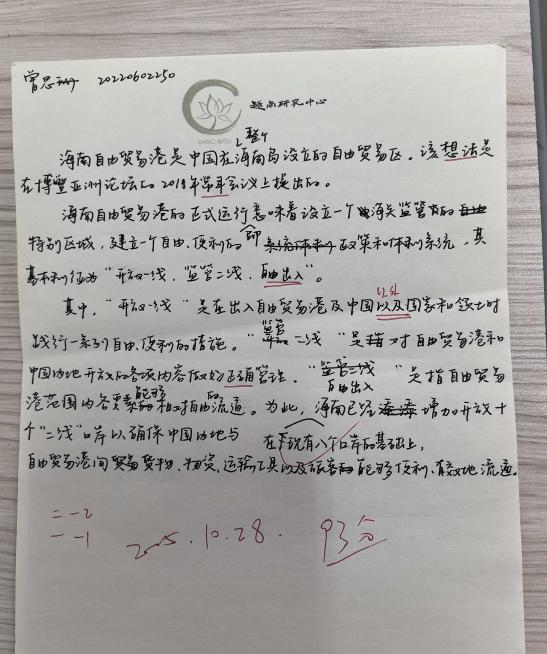 曾思珊 20220602250
越南研究中心
VNSC-BFSU
整个
海南自由贸易港是中国在海南岛设立的自由贸易区。该想法是
在博鳌亚洲论坛的2018年会议上提出的。
海南自由贸易港的正式运行意味着设立一个海关监管的
特别区域，建立一个自由、便利的 即 政策和体制系统，其
基本特征为“开放一线，监管二线，自由出入”。
以外
其中，“开放一线”是在出入自由贸易港及中国以及国家和领土时
践行一系列自由、便利的措施。“监管二线”是指对自由贸易港和
中国内地开放的各项内容做好正确管理。“自由出入”是指自由贸易
能够
港范围内各要素相对自由流通。为此，海南已经增加开放十
个“二线”口岸以确保中国内地与
在现有八个口岸的基础上，
自由贸易港间货物、物资、运输工具以及旅客能够便利、有效地流通。
= -2
= -1
2025.10.28. 93分